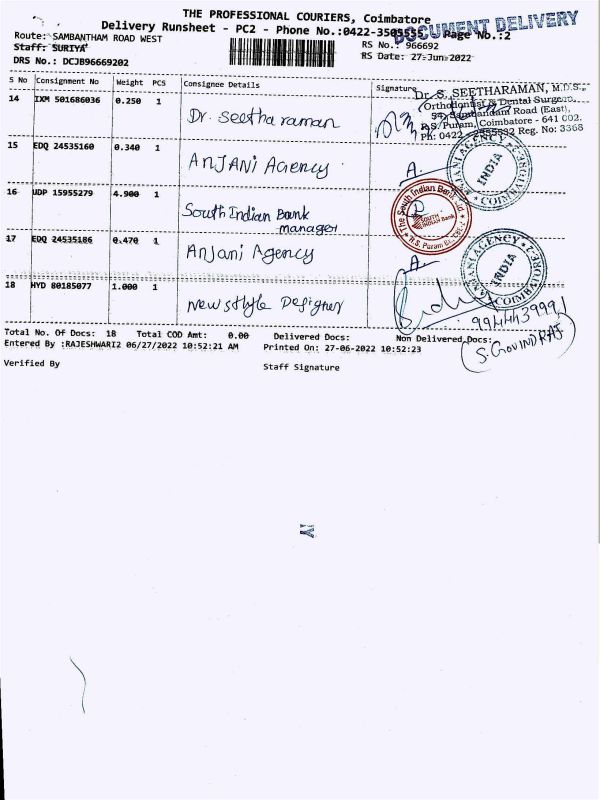 THE PROFESSIONAL COURIERS, Coimbatore
Delivery Runsheet - PC2 - Phone No.:0422-3505555 Page No.:2
DOCUMENT DELIVERY
Route: SAMBANTHAM ROAD WEST
RS No.: 966692
Staff: SURIYA
RS Date: 27-Jun-2022
DRS No.: DCJB96669202
S No Consignment No Weight PCS Consignee Details Signature
Dr. S. SEETHARAMAN, M.D.S.,
Orthodontist & Dental Surgeon,
54, Sambandam Road (East),
R.S. Puram, Coimbatore - 641 002.
Ph: 0422 Reg. No: 3368
14 IXM 501686036 0.250 1 Dr. Seetharaman
15 EDQ 24535160 0.340 1 ANJANi Agency A.
ANJANI AGENCY
INDIA
COIMBATORE
16 UDP 15955279 4.900 1 South Indian Bank
manager
The South Indian Bank Ltd
SOUTH INDIAN Bank
R.S. Puram
17 EDQ 24535186 0.470 1 Anjani Agency A.
ANJANI AGENCY
INDIA
COIMBATORE
18 HYD 80185077 1.000 1 New style Designer
9944439991
S. GOVINDRAJ
Total No. Of Docs: 18 Total COD Amt: 0.00 Delivered Docs: Non Delivered Docs:
Entered By :RAJESHWARI2 06/27/2022 10:52:21 AM Printed On: 27-06-2022 10:52:23
Verified By Staff Signature